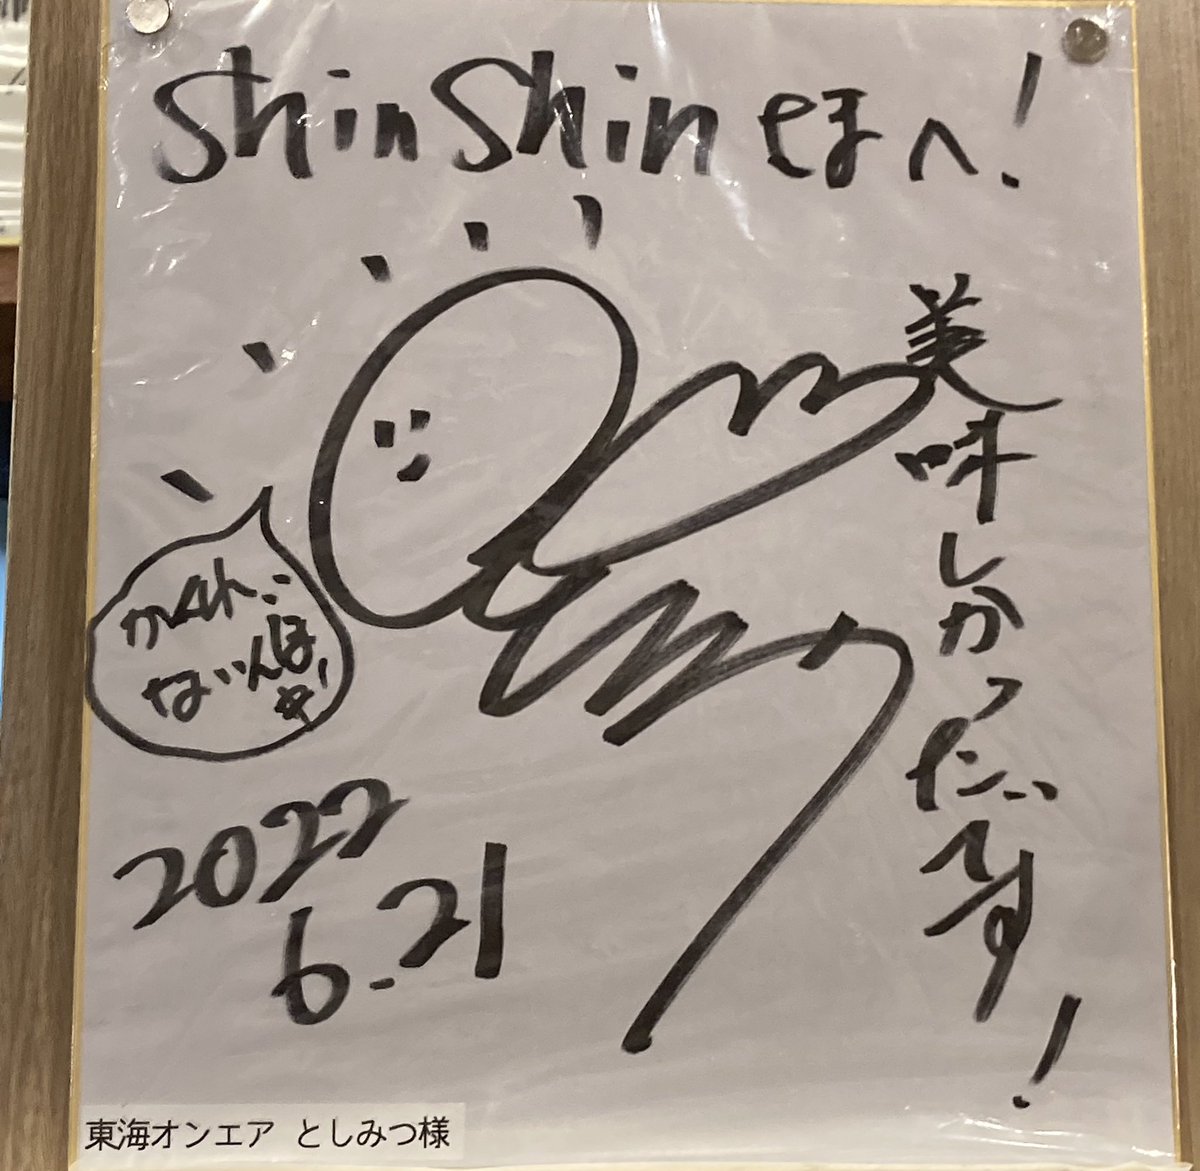 ShinShinさまへ!
美味しかったです!
かくれ
ないんぼ
2022
6.21
東海オンエア としみつ様